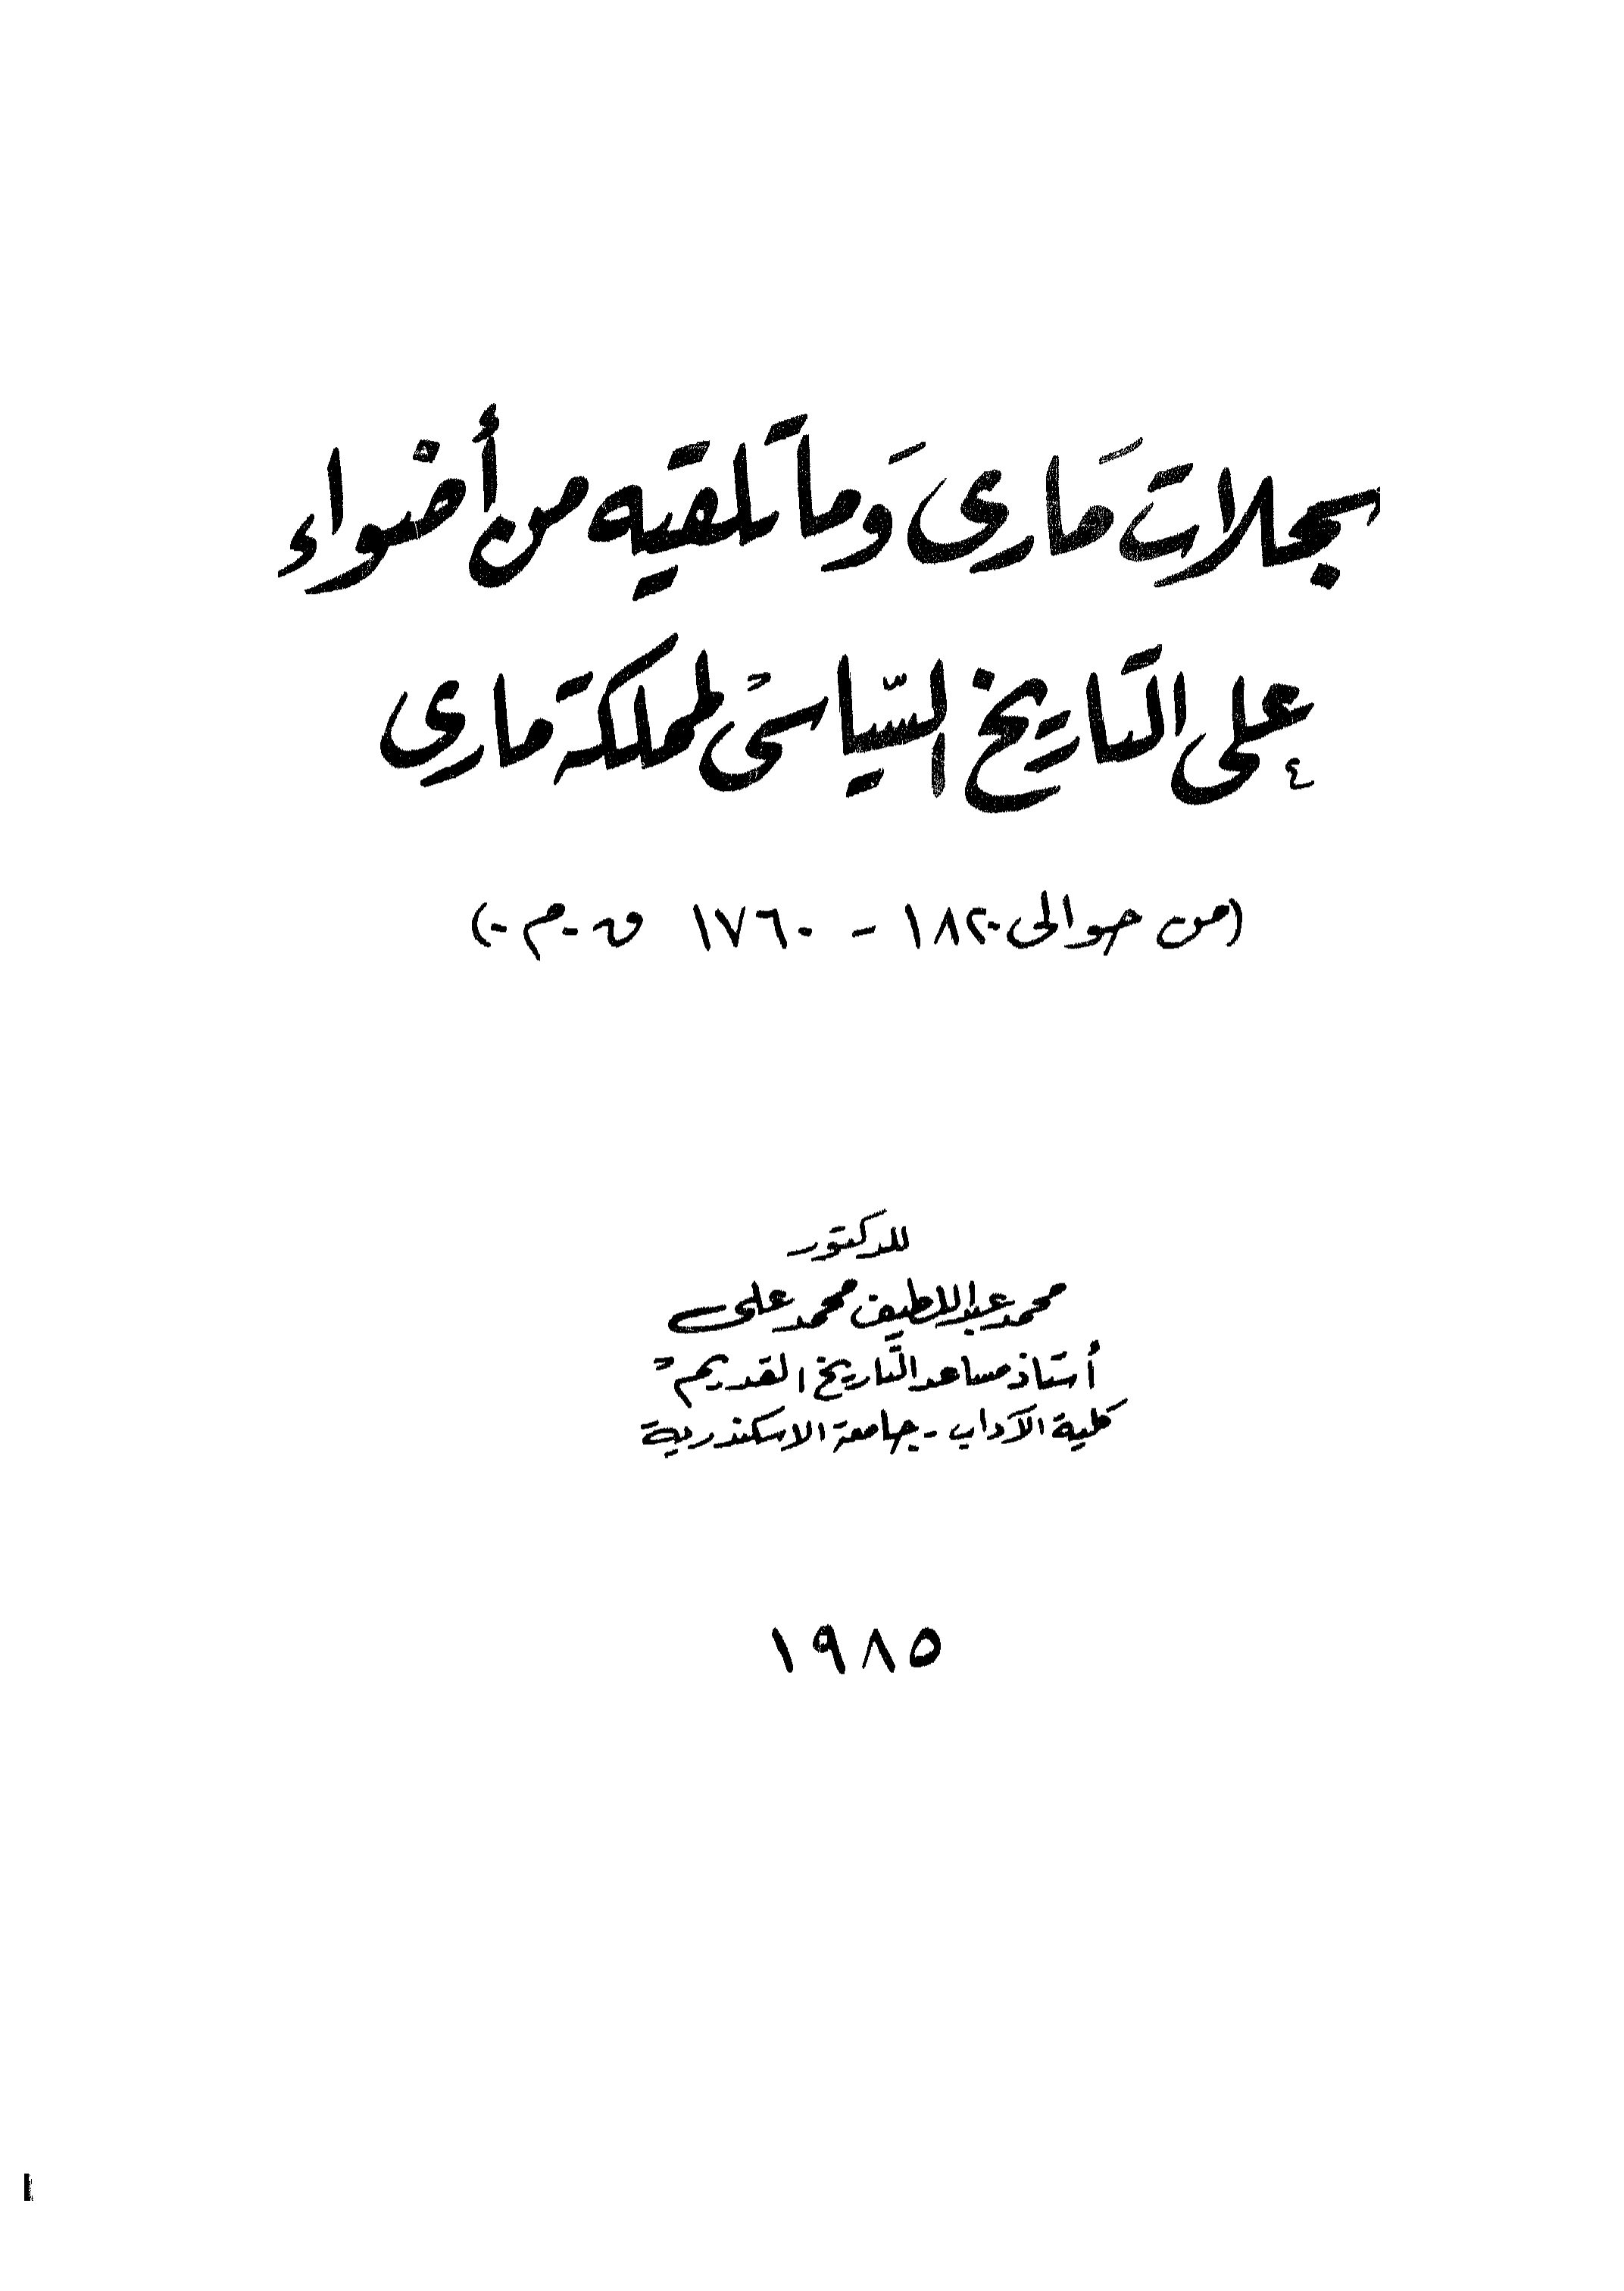 سجلات مَارى وَما تلقيه من أضواء
على التاريخ السّياسى لمملكة مارى
(من حوالى ١٨٢٠ - ١٧٦٠ ق.م.)
للدكتور
محمد عبد اللطيف محمد على
أستاذ مساعد التَّاريخ القديم
كلية الآداب - جامعة الاسكندرية
١٩٨٥